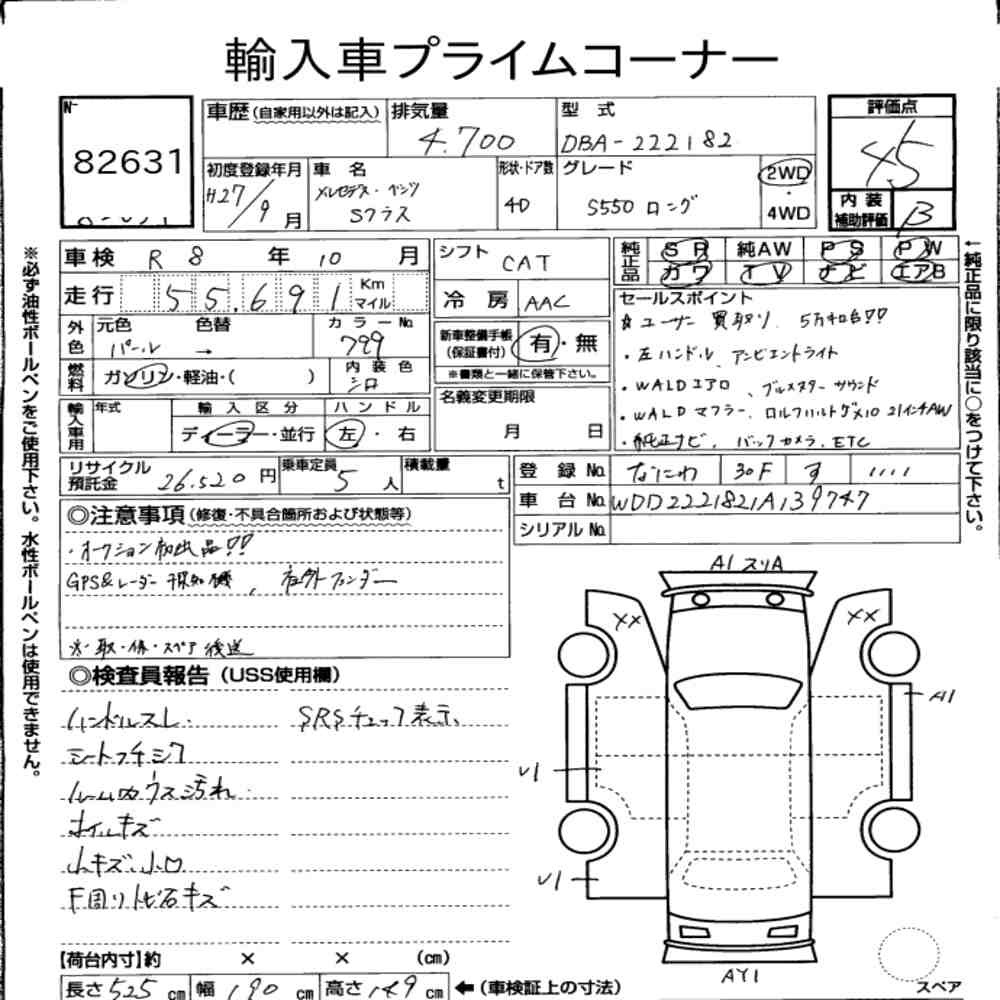 輸入車プライムコーナー
N-
82631
車歴(自家用以外は記入)
排気量
4.700
型 式
DBA-222182
評価点
4.5
初度登録年月
H27/9月
車 名
メルセデス・ベンツ
Sクラス
形状・ドア数
4D
グレード
S550 ロング
2WD
・
4WD
内 装
補助評価
B
車検 R 8 年 10 月
走行 55.691 Km
マイル
シフト CAT
冷 房 AAC
純正品
SR 純AW PS PW
カワ TV ナビ エアB
セールスポイント
☆ユーザー買取り 5万キロ台!!
・左ハンドル アンビエントライト
・WALDエアロ、ブルメスターサウンド
・WALDマフラー、ロルフハルトゲ×10 21インチAW
・純正ナビ、バックカメラ、ETC
外色
元色 色替
パール →
カラーNo.
799
燃料
ガソリン・軽油・( )
内 装 色
シロ
新車整備手帳
(保証書付)
有・無
※書類と一緒に保管下さい。
輸入車用
年式
輸 入 区 分
ディーラー・並行
ハ ン ド ル
左・右
名義変更期限
月 日
リサイクル
預託金 26.520 円
乗車定員
5 人
積載量
t
登 録 No. なにわ 30F す 1111
車 台 No. WDD2221821A139747
シリアル No.
◎注意事項(修復・不具合箇所および状態等)
・オークション初出品!!
GPS&レーダー探知機、社外フェンダー
※取・保・スペア後送
◎検査員報告(USS使用欄)
ハンドルスレ. SRSチェック表示、
シートフチシワ
ルーム内ウス汚れ
ホイルキズ
小キズ、小凹
F周りトビ石キズ
【荷台内寸】約 × × (cm)
長さ 525 cm 幅 190 cm 高さ 149 cm ←(車検証上の寸法)
A1 スリA
XX
XX
A1
U1
U1
AY1
スペア
※必ず油性ボールペンをご使用下さい。水性ボールペンは使用できません。
←純正品に限り該当に○をつけて下さい。